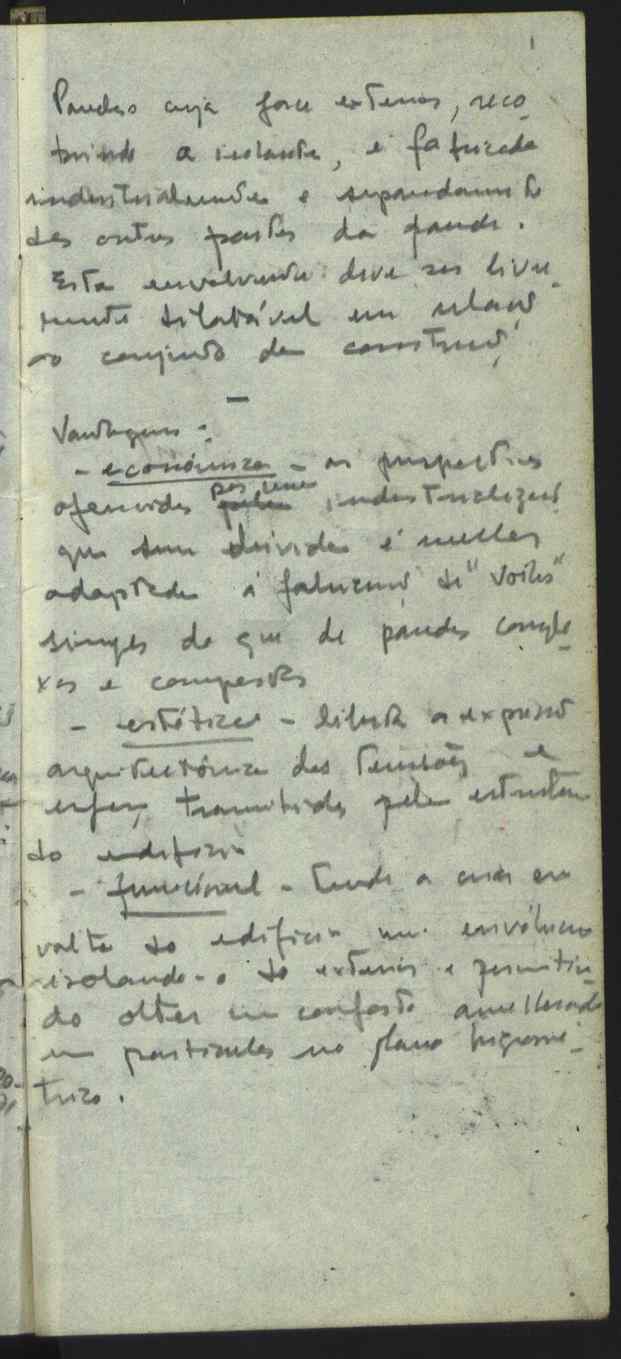 1
Paredes cuja face exterior, reco-
brindo a isolante, é fabricada
industrialmente e separadamente
das outras partes da parede.
Esta envolvente deve ser livre-
mente dilatável em relação
ao conjunto da construção
—
Vantagens:
- económica - as perspectivas
oferecidas por uma industrialização
que sem dúvida é melhor
adaptada à fabricação de "voiles"
simples do que de paredes comple-
xas e compostas
- estética - liberta a expressão
arquitectónica das tensões e
esforç transmitidos pela estrutura
do edifício
- funcional - tende a criar em
volta do edifício um invólucro
isolando-o do exterior e permitin-
do obter um conforto melhorado
em particular no plano higromé-
trico.